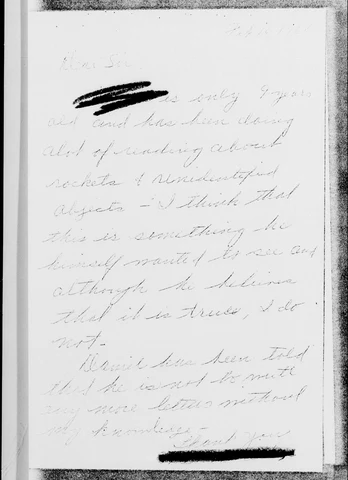 Dear Sir
is only 9 years
old and has been doing
alot of reading about
rockets & unidentified
objects - I think that
this is something he
himself wanted to see and
although he believes
that it is true, I do
not -
has been told
that he is not to
any more letters without
my knowledge -
Thank You